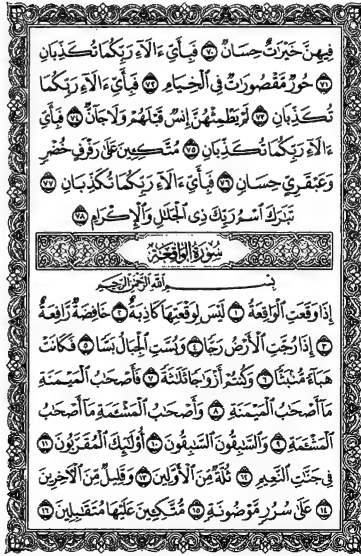 فِيهِنَّ خَيْرَاتٌ حِسَانٌ ۝٧٠ فَبِأَيِّ ءَالَآءِ رَبِّكُمَا تُكَذِّبَانِ
۝٧١ حُورٌ مَّقْصُورَاتٌ فِي الْخِيَامِ ۝٧٢ فَبِأَيِّ ءَالَآءِ رَبِّكُمَا
تُكَذِّبَانِ ۝٧٣ لَمْ يَطْمِثْهُنَّ إِنسٌ قَبْلَهُمْ وَلَا جَانٌّ ۝٧٤ فَبِأَيِّ
ءَالَآءِ رَبِّكُمَا تُكَذِّبَانِ ۝٧٥ مُتَّكِـِٔينَ عَلَىٰ رَفْرَفٍ خُضْرٍ
وَعَبْقَرِيٍّ حِسَانٍ ۝٧٦ فَبِأَيِّ ءَالَآءِ رَبِّكُمَا تُكَذِّبَانِ ۝٧٧
تَبَٰرَكَ اسْمُ رَبِّكَ ذِي الْجَلَٰلِ وَالْإِكْرَامِ ۝٧٨
سُورَةُ الوَاقِعَةِ
بِسْمِ اللَّهِ الرَّحْمَٰنِ الرَّحِيمِ
إِذَا وَقَعَتِ الْوَاقِعَةُ ۝١ لَيْسَ لِوَقْعَتِهَا كَاذِبَةٌ ۝٢ خَافِضَةٌ رَّافِعَةٌ
۝٣ إِذَا رُجَّتِ الْأَرْضُ رَجًّا ۝٤ وَبُسَّتِ الْجِبَالُ بَسًّا ۝٥ فَكَانَتْ
هَبَآءً مُّنۢبَثًّا ۝٦ وَكُنتُمْ أَزْوَٰجًا ثَلَٰثَةً ۝٧ فَأَصْحَٰبُ الْمَيْمَنَةِ
مَآ أَصْحَٰبُ الْمَيْمَنَةِ ۝٨ وَأَصْحَٰبُ الْمَشْـَٔمَةِ مَآ أَصْحَٰبُ
الْمَشْـَٔمَةِ ۝٩ وَالسَّٰبِقُونَ السَّٰبِقُونَ ۝١٠ أُولَٰٓئِكَ الْمُقَرَّبُونَ ۝١١
فِي جَنَّٰتِ النَّعِيمِ ۝١٢ ثُلَّةٌ مِّنَ الْأَوَّلِينَ ۝١٣ وَقَلِيلٌ مِّنَ الْآخِرِينَ
۝١٤ عَلَىٰ سُرُرٍ مَّوْضُونَةٍ ۝١٥ مُّتَّكِـِٔينَ عَلَيْهَا مُتَقَٰبِلِينَ ۝١٦